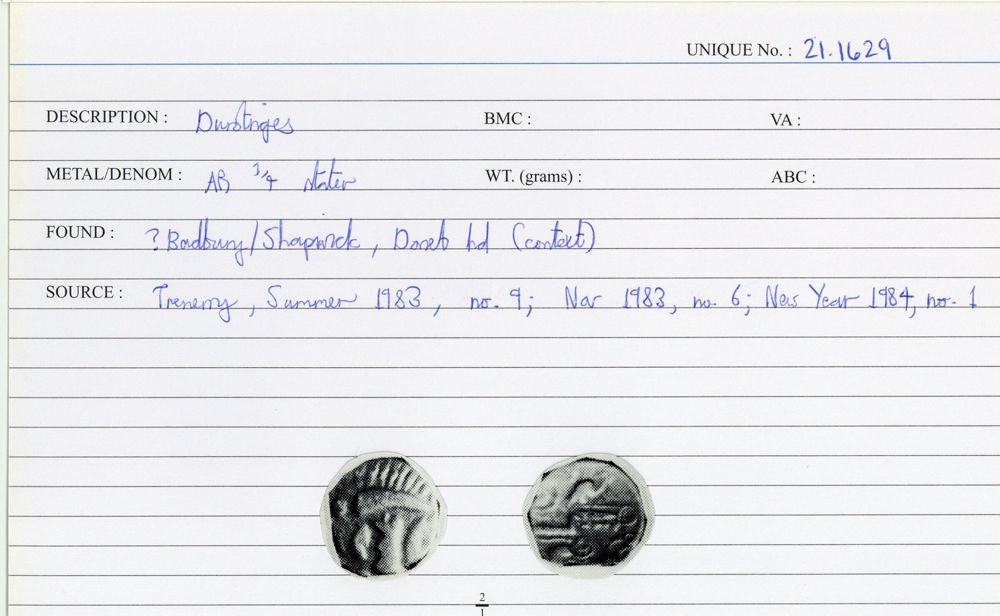 UNIQUE No. : 21.1629
DESCRIPTION : Durotriges BMC : VA :
METAL/DENOM : AR 1/4 stater WT. (grams) : ABC :
FOUND : ? Badbury/Shapwick, Dorset hd (context)
SOURCE : Trenerry, Summer 1983, no. 9; Nov 1983, no. 6; New Year 1984, no. 1
2/1